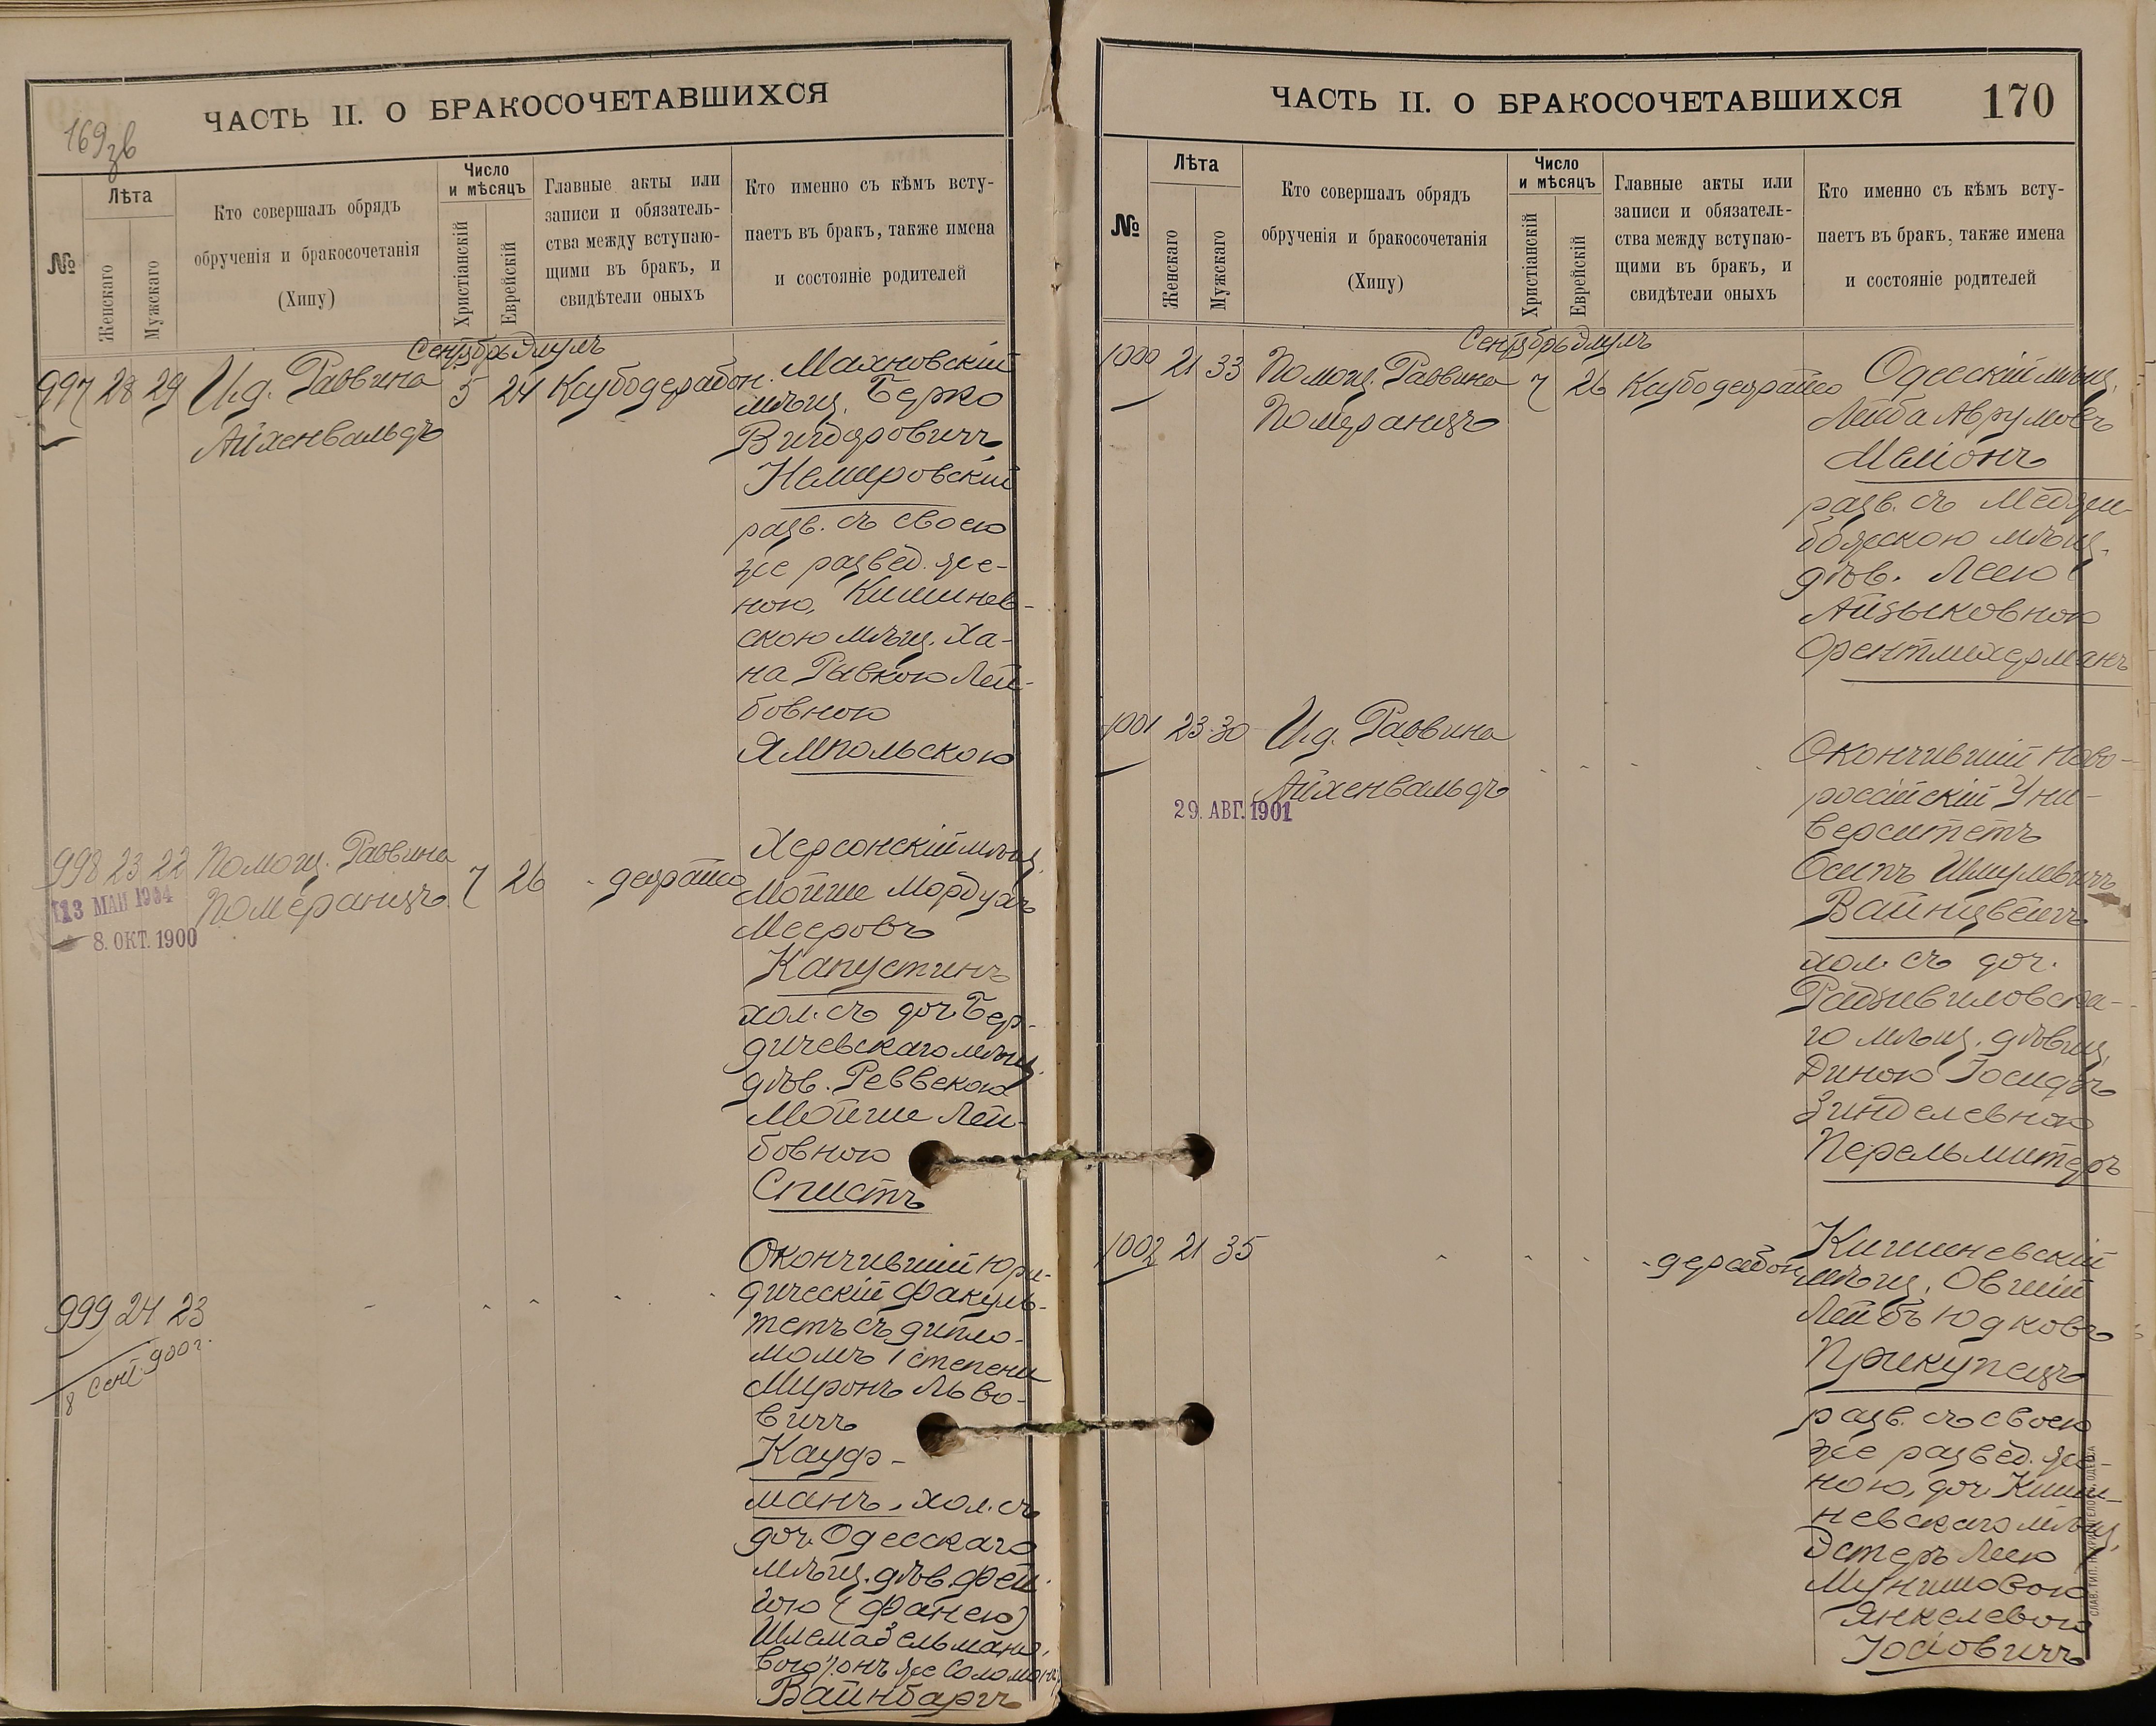 ЧАСТЬ II. О БРАКОСОЧЕТАВШИХСЯ
169
№
Лѣта
Женскаго
Мужскаго
Кто совершалъ обрядъ
обрученія и бракосочетанія
(Хипу)
Число
и мѣсяцъ
Христіанскій
Еврейскій
Главные акты или
записи и обязатель-
ства между вступаю-
щими въ бракъ, и
свидѣтели оныхъ
Кто именно съ кѣмъ всту-
паетъ въ бракъ, также имена
и состояніе родителей
Сентябрь Элулъ
997 28 29 И.д. Раввина 5 24
Айхенвальдъ
Махновскій
мѣщ. Берко
Вигдоровичъ
Немировскій
разв. съ своею
же развед. же-
ною, Кишинев-
скою мѣщ. Ха-
на Рывкою Лей-
бовною
Ямпольскою
998 23 22 Помощ. Раввина 7 26
Померанцъ
13 МАЙ
8. ОКТ. 1900
Херсонскій мѣщ.
Мойше Мордухъ
Мееровъ
Капустинъ
хол. съ доч. Бер-
дичевскаго мѣщ.
дѣв. Реввекою
Мойше Лей-
бовною
999 24 23
8 Сент. 900 г.
Окончившій Юри-
дическій Факуль-
тетъ съ дипло-
момъ I степени
Миронъ Льво-
вичъ
Кауф-
манъ, хол. съ
доч. Одесскаго
мѣщ. дѣв. Фей-
гою (Фанею)
онъ же Соломонъ
Вайнбаргъ
ЧАСТЬ II. О БРАКОСОЧЕТАВШИХСЯ
170
№
Лѣта
Женскаго
Мужскаго
Кто совершалъ обрядъ
обрученія и бракосочетанія
(Хипу)
Число
и мѣсяцъ
Христіанскій
Еврейскій
Главные акты или
записи и обязатель-
ства между вступаю-
щими въ бракъ, и
свидѣтели оныхъ
Кто именно съ кѣмъ всту-
паетъ въ бракъ, также имена
и состояніе родителей
Сентябрь Элулъ
1000 21 33 Помощ. Раввина 7 26
Померанцъ
Одесскій мѣщ.
Лейба Аврумовъ
разв. съ Медзи-
божскою мѣщ.
дѣв. Леею
Айзыковною
Орентлихерманъ
1001 23 30 И.д. Раввина
Айхенвальдъ
29. АВГ. 1901
Окончившій Ново-
россійскій Уни-
верситетъ
Осипъ Шмулевичъ
Вайнцвейгъ
хол. съ доч.
Радзивиловска-
го мѣщ. дѣвиц.
Диною Іосифъ
Зинделевною
Перельмитеръ
1002 21 35
Кишиневскій
мѣщ. Овшій
Лейбъ Юдковъ
Прикупецъ
разв. съ своею
же развед. же-
ною, доч. Киши-
невскаго мѣщ.
Эстеръ Леею
Янкелевою
Іосіовичъ